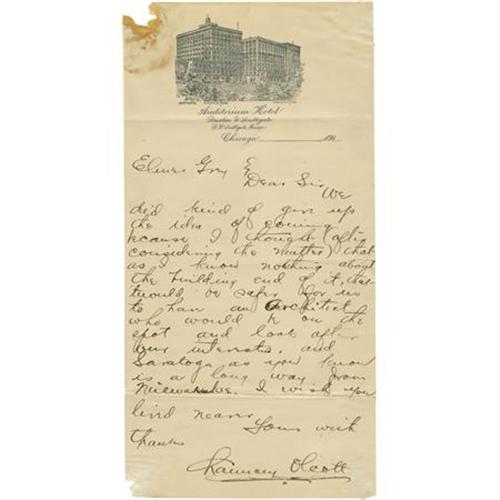 Auditorium Hotel
Breslin & Southgate
R.H. Southgate, Manager
Chicago 190
Elmer Grey Esq
Dear Sir, We
did kind of give up
the idea of coming
because I thought (after
considering the matter) that
as I know nothing about
the building end of it,
would be safer for us
to have an architect
who would be on the
spot and look after
our interests, and
Saratoga as you know
is a long way from
Milwaukee. I wish you
lived nearer
Yours with
thanks
Chauncey Olcott